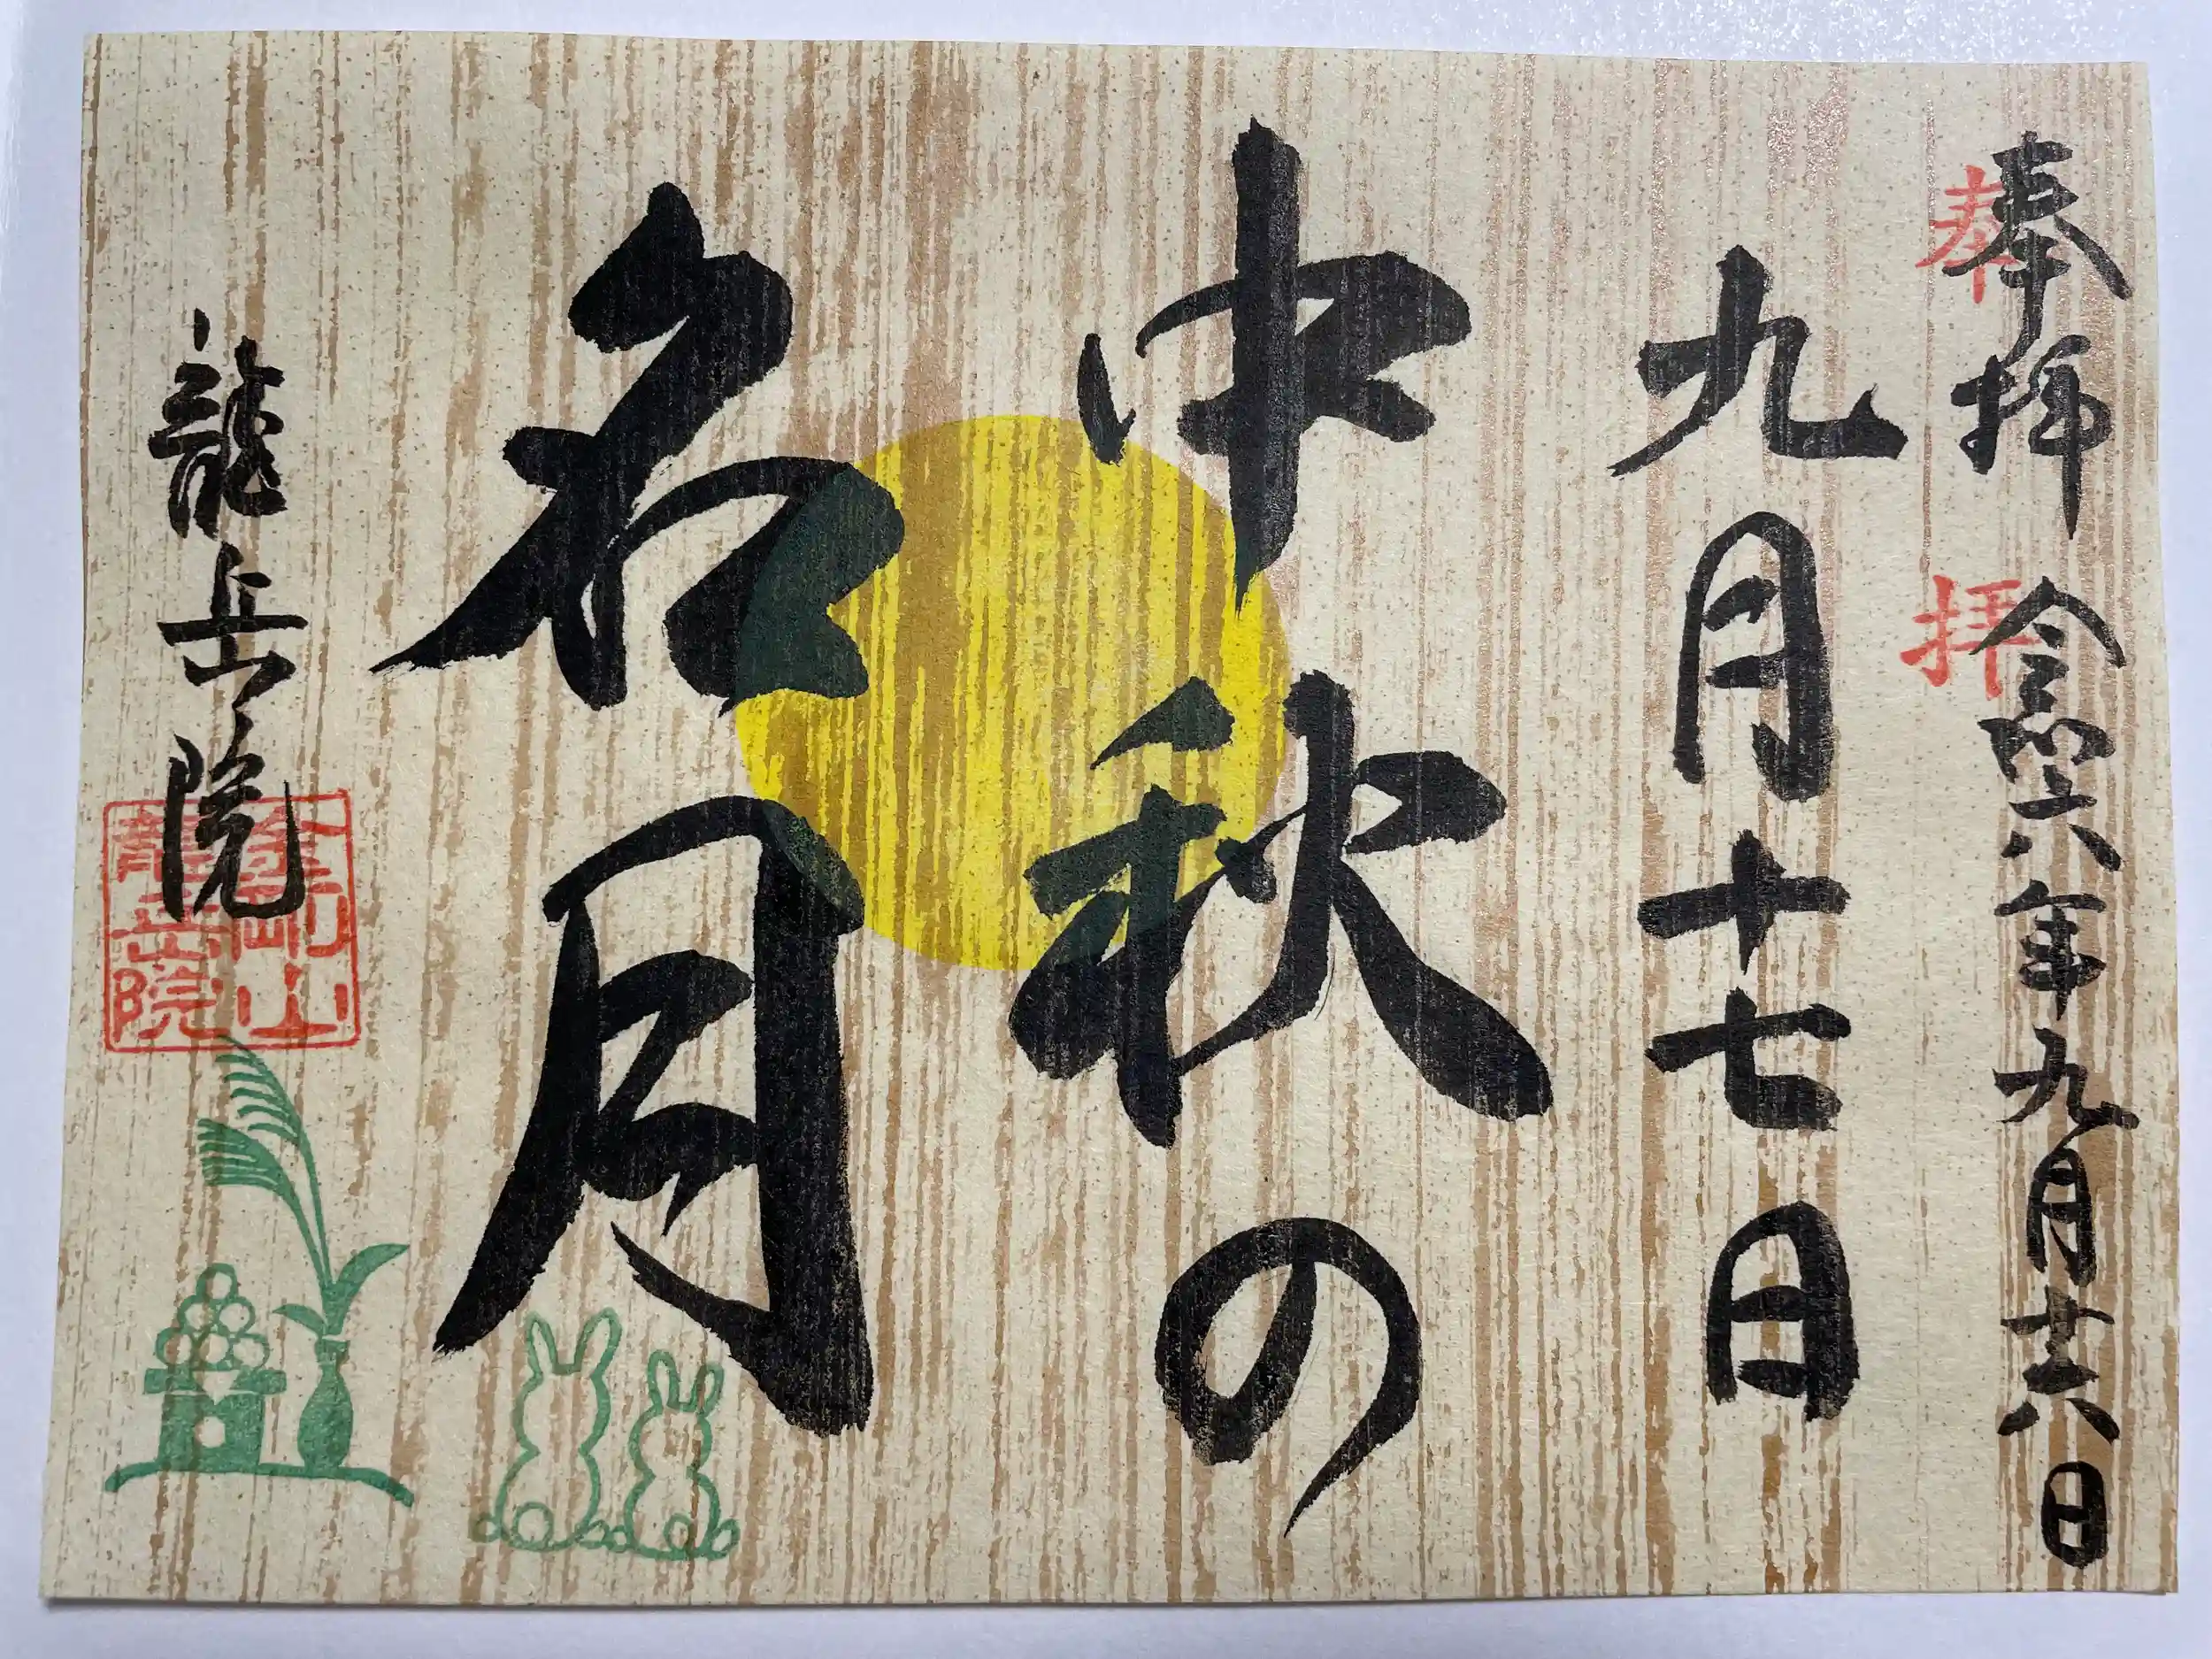 奉拝 令和六年九月十八日
奉拝
九月十七日
中秋の
名月
龍岳院
金剛山
龍岳院